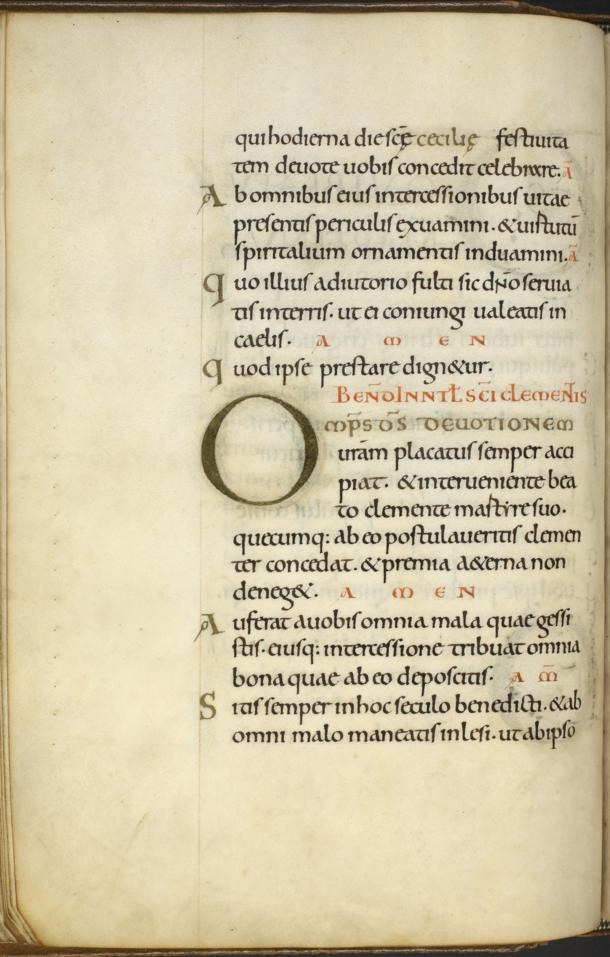 qui hodierna die scę cecilię festiuita
tem deuote uobis concedit celebrare. ā
A b omnibus eius intercessionibus uitae
presentis periculis exuamini. & uistutū
spiritalium ornamentis induamini. ā
q uo illius adiutorio fulti sic dño seruia
tis interris. ut ei coniungi ualeatis in
caelis. A M E N
q uod ipse prestare dign&ur.
BEÑDI IN NTŁ SCI CLEMEÑTIS
O MP̄S D̄S DEUOTIONEM
uram placatus semper acci
piat. & interueniente bea
to clemente mastyre suo.
quecumq: ab eo postulaueritis clemen
ter concedat. & premia a&erna non
deneg&. A M E N
A uferat auobis omnia mala quae gessi
stis. eiusq: intercessione tribuat omnia
bona quae ab eo deposcitis. A M̄
S itis semper in hoc seculo benedicti. & ab
omni malo maneatis inlesi. ut ab ipso